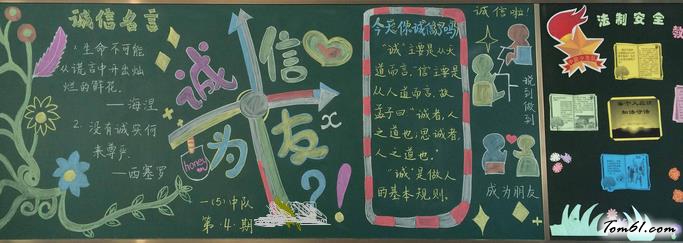 诚信名言
1. 生命不可能
从谎言中开出灿
烂的鲜花。
——海涅
2. 没有诚实何
来尊严。
——西塞罗
诚信
为友
honey
x
?!
一(5)中队
第·4·期
今天你诚信了吗?
“诚”主要是从天
道而言,“信”主要是
从人道而言。故
孟子曰“诚者,天
之道也;思诚者,
人之道也。”
“诚”是做人
的基本规则。
诚信啦!
说到做到
成为朋友
法制安全
Tom61.com